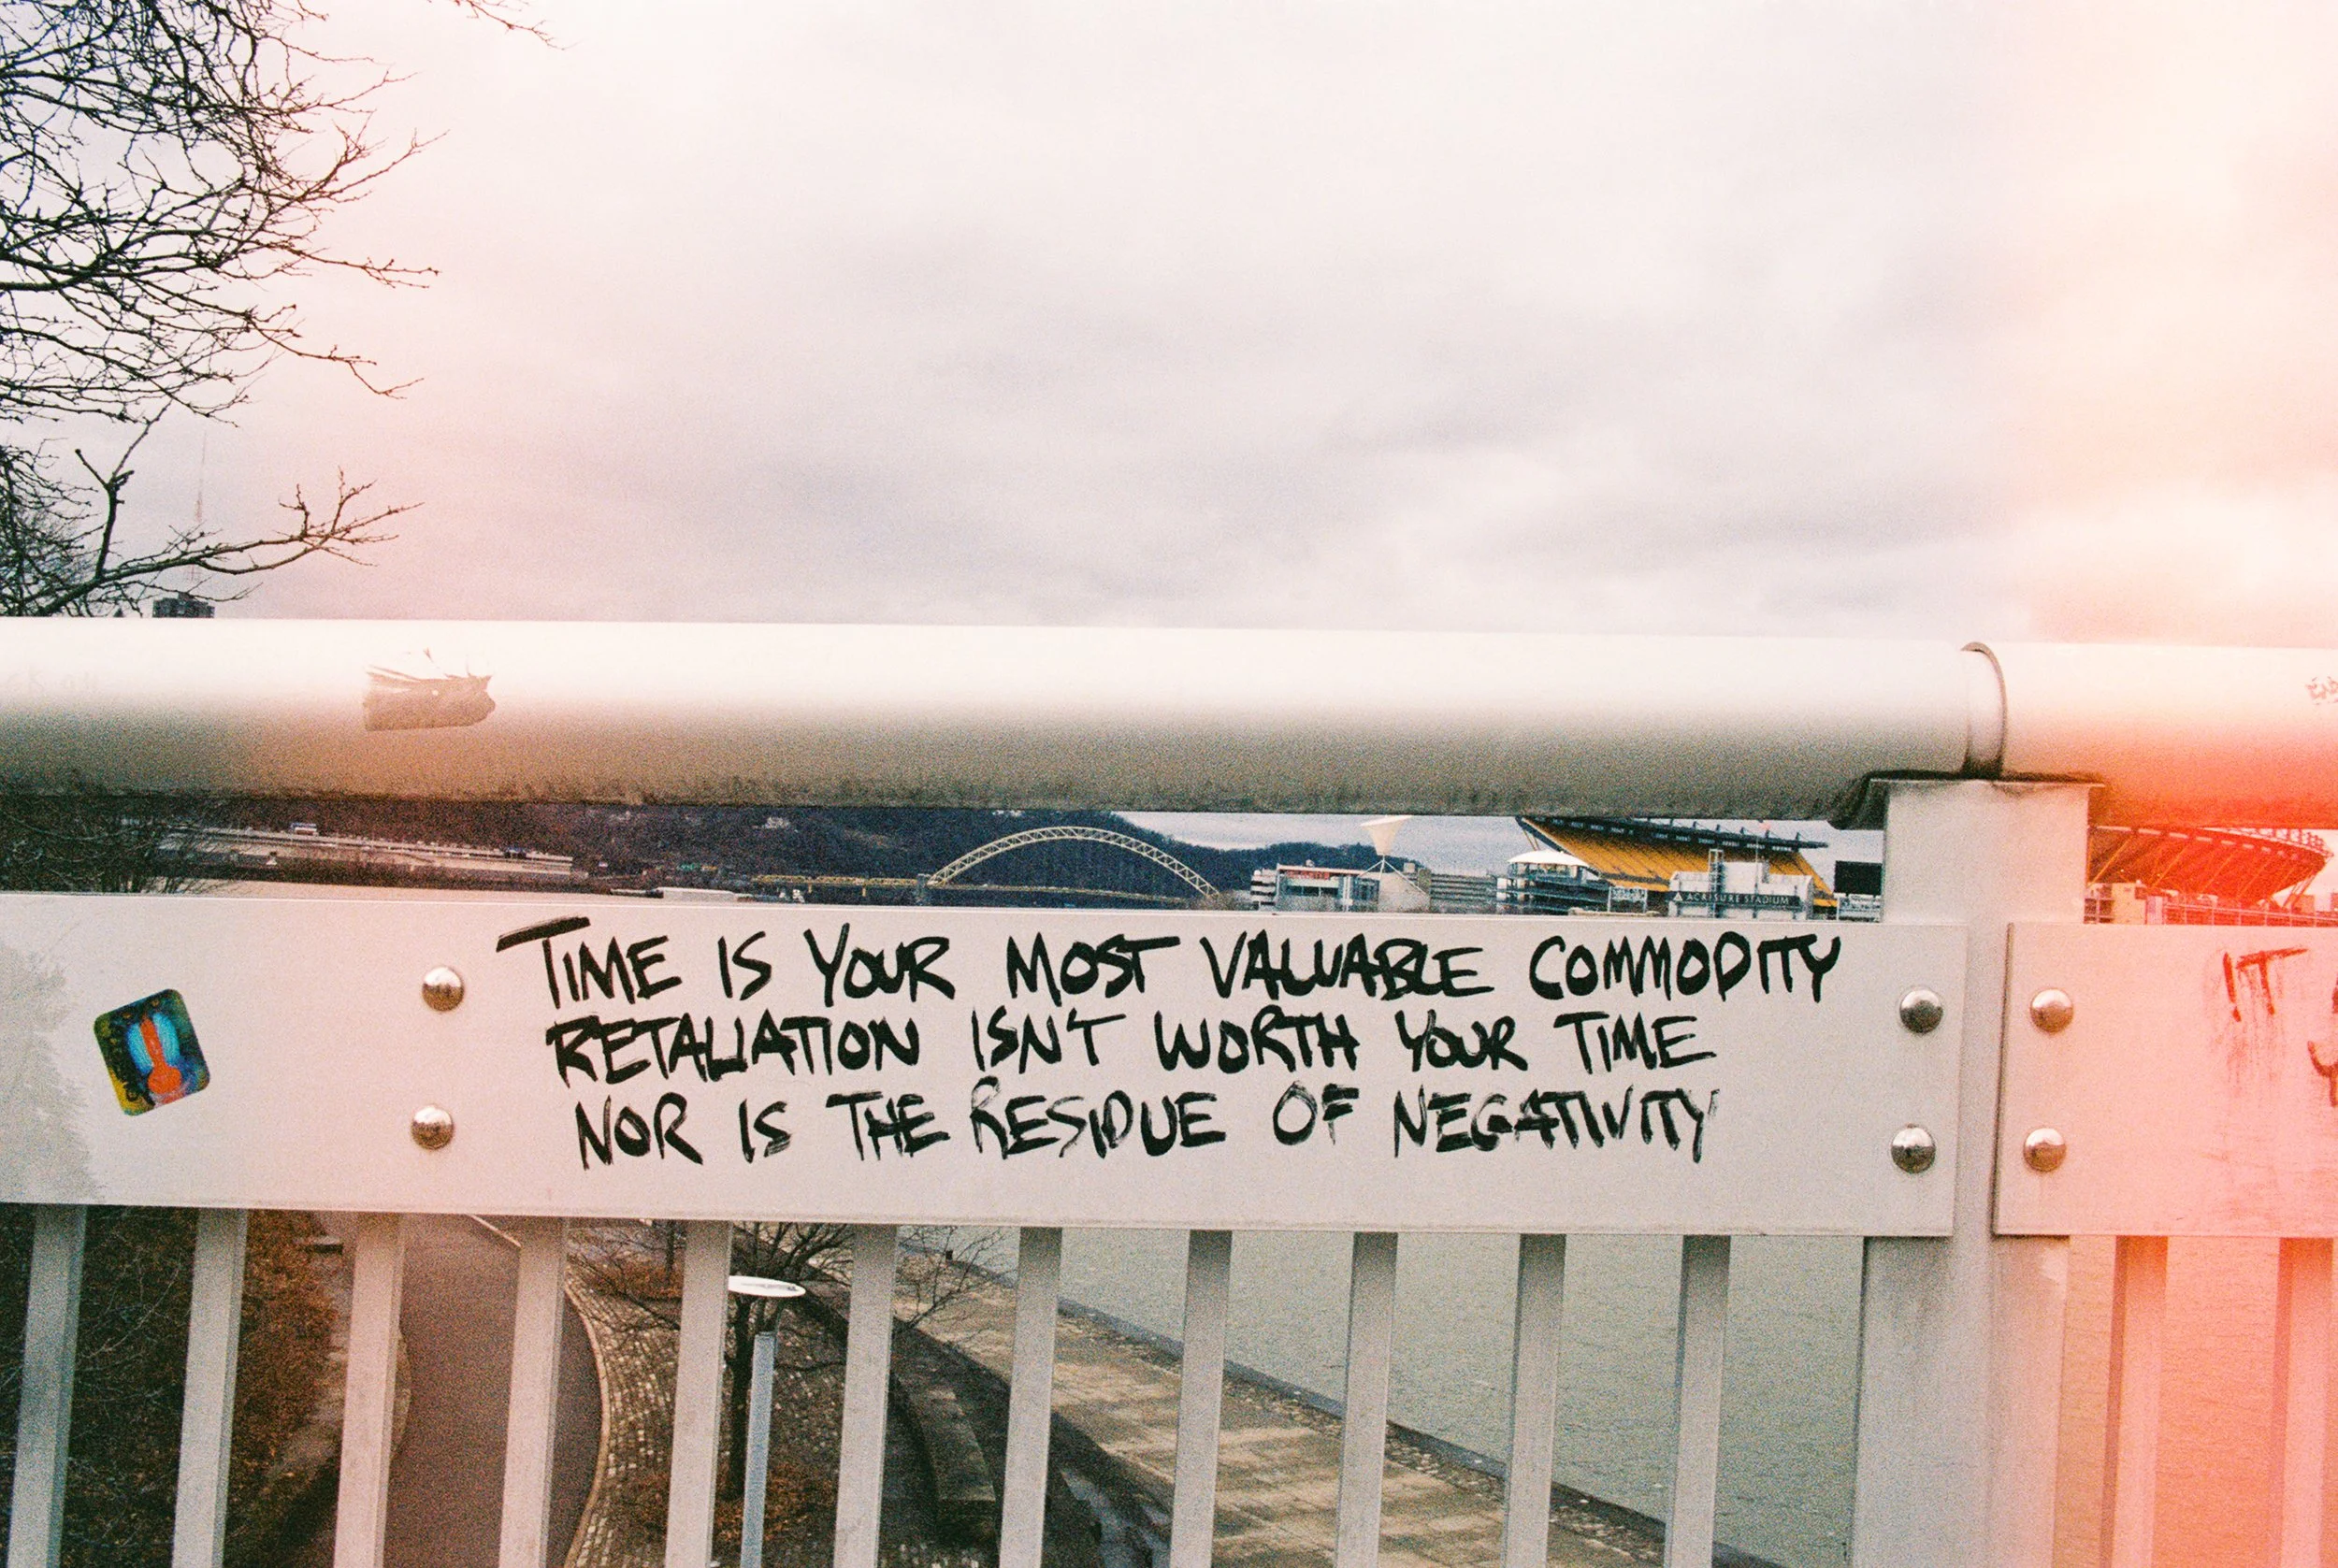 ACRISURE STADIUM
TIME IS YOUR MOST VALUABLE COMMODITY
RETALIATION ISN'T WORTH YOUR TIME
NOR IS THE RESIDUE OF NEGATIVITY
IT